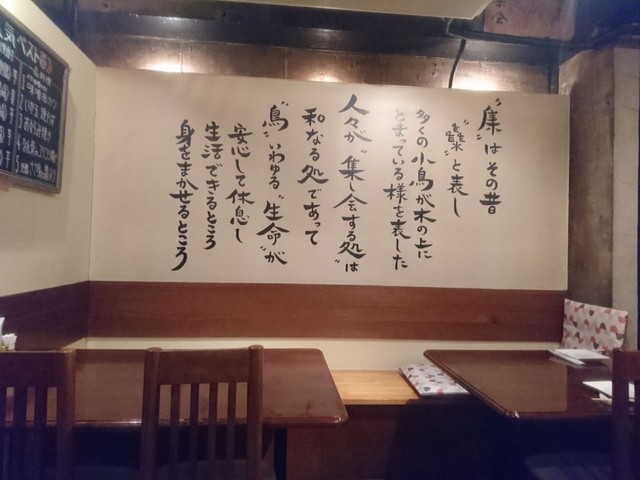 はその昔
と表し
多くの小鳥が木の上に
とまっている様を表した
人々が“集し会する処”は
和なる処であって
“鳥”いわゆる“生命”が
安心して休息し
生活できるところ
身をまかせるところ